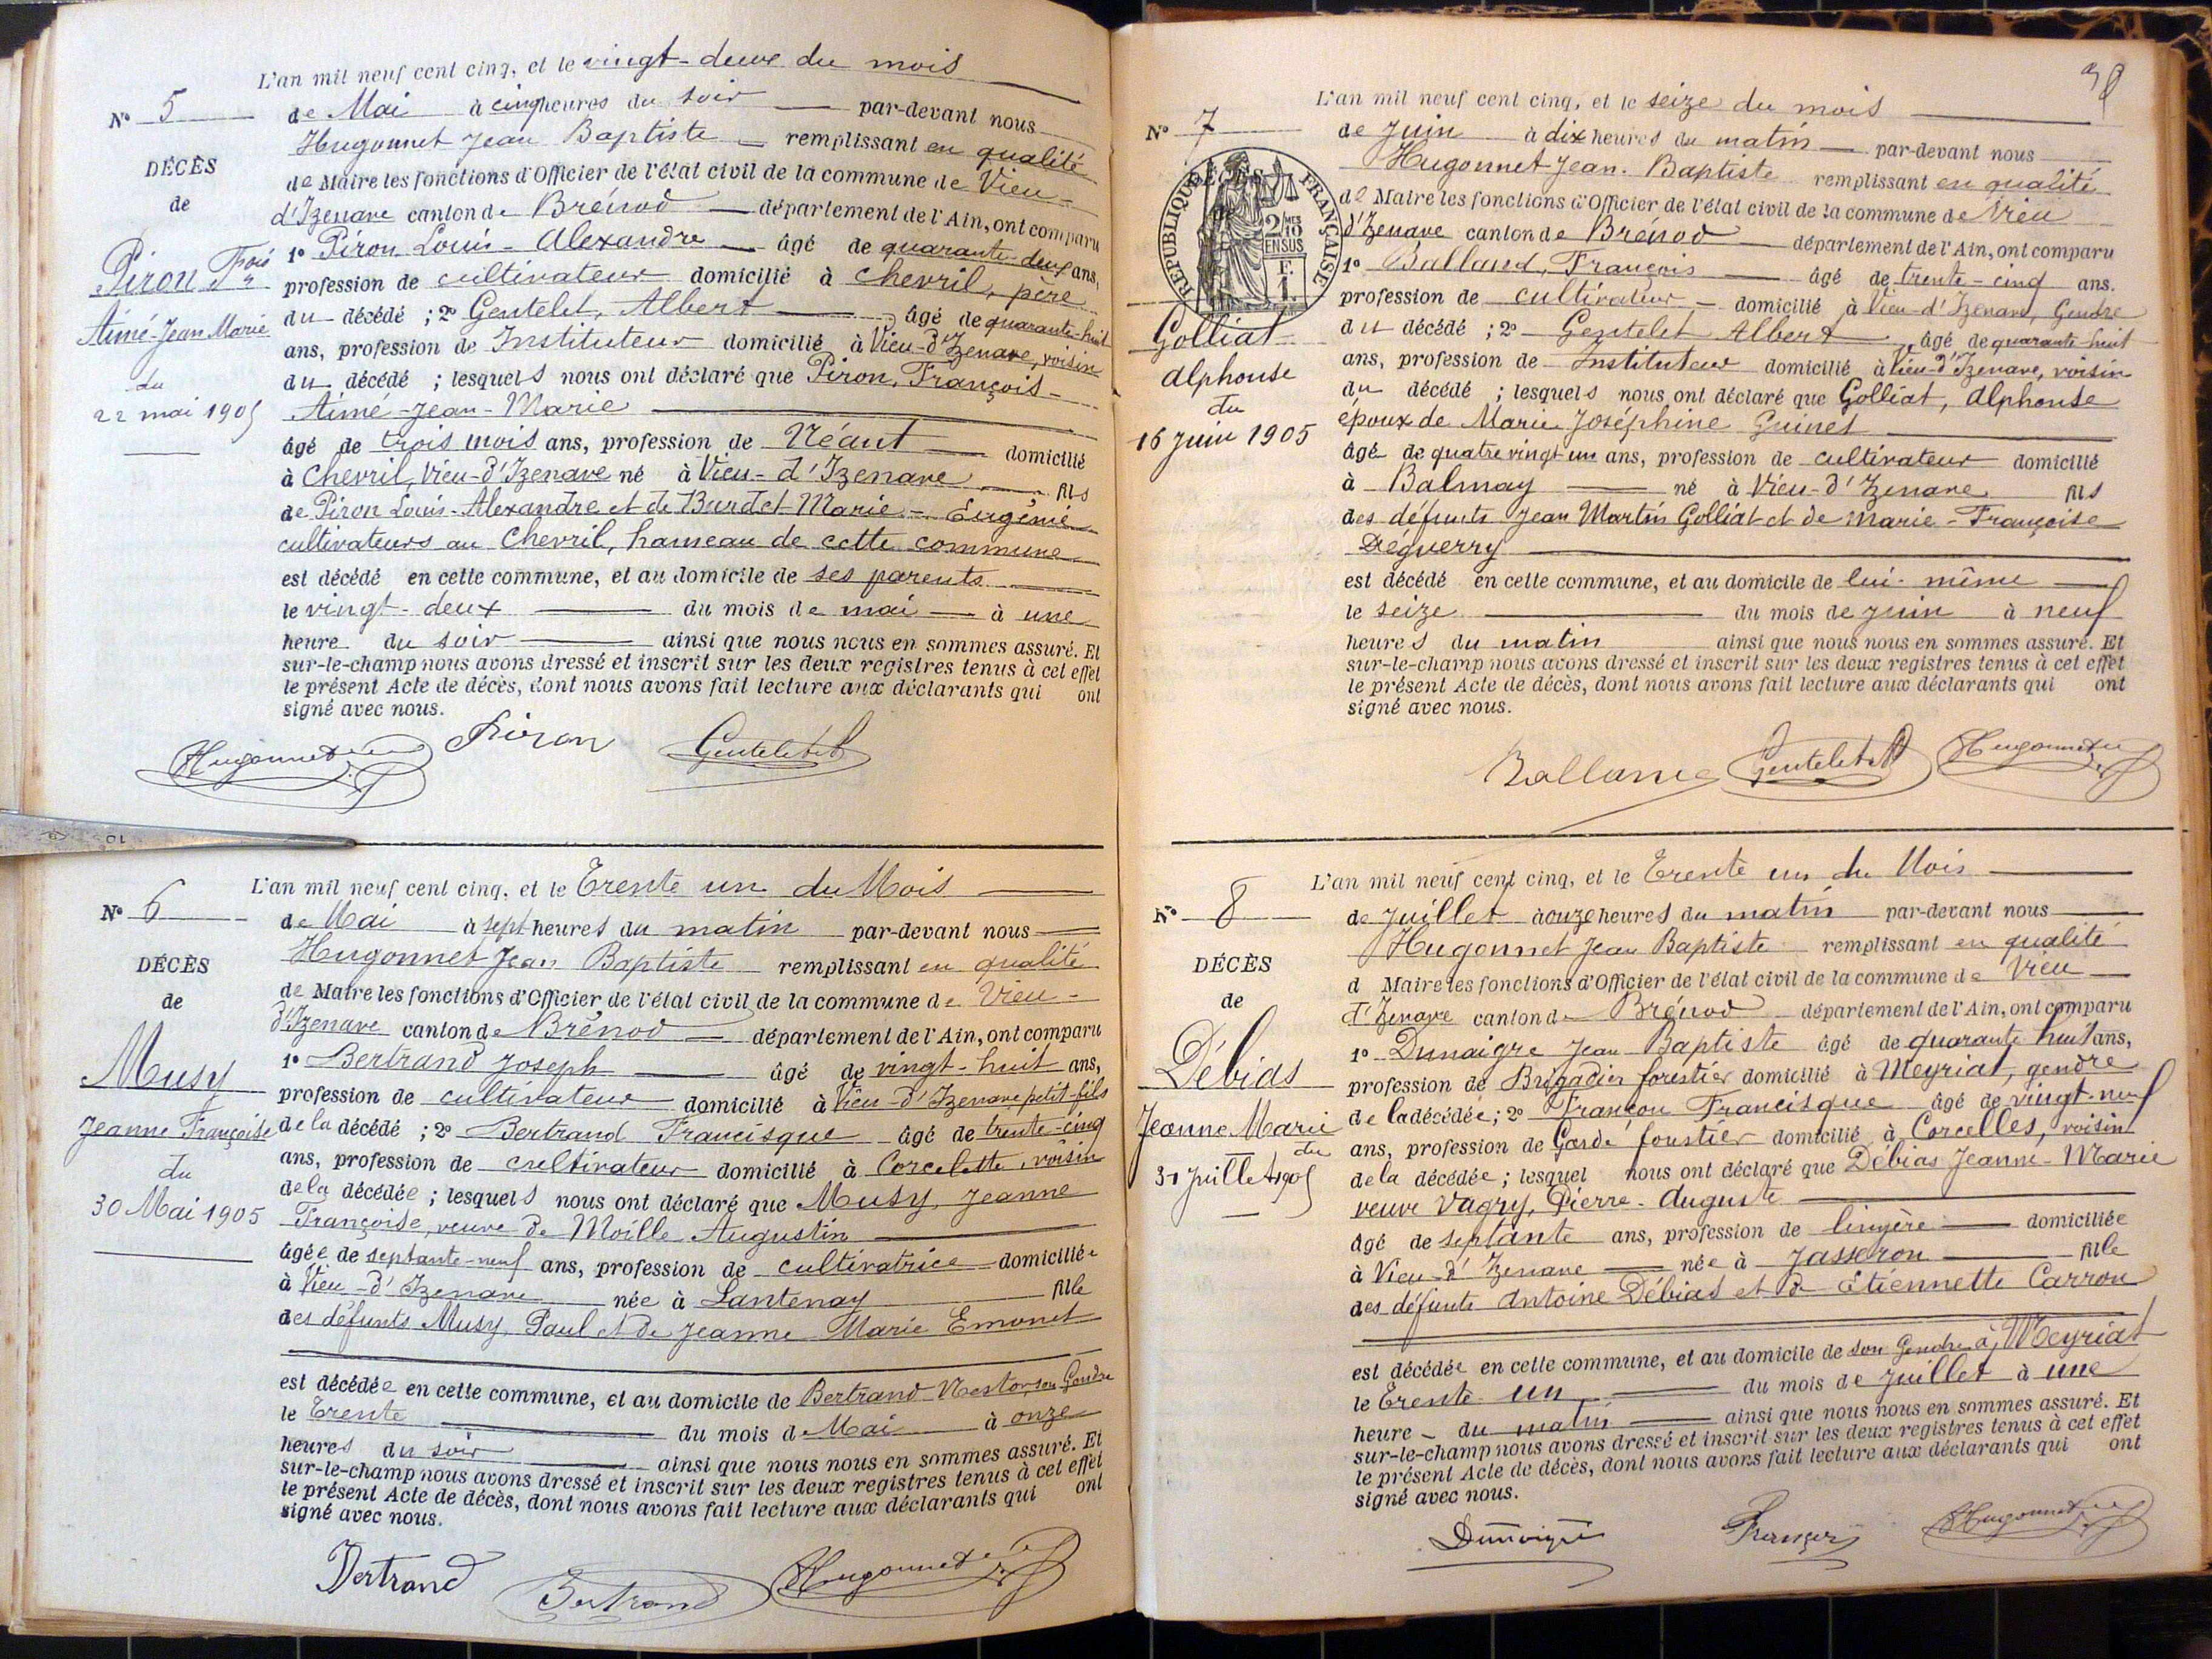 L'an mil neuf cent cinq, et le vingt-deux du mois
N° 5
de Mai à cinq heures du soir par-devant nous
Hugonnet Jean Baptiste remplissant en qualité
DÉCÈS
de Maire les fonctions d'Officier de l'état civil de la commune de Vieu-
de
d'Izenave canton de Brénod département de l'Ain, ont comparu
1° Piron Louis-Alexandre âgé de quarante-deux ans,
Piron Fçois
profession de cultivateur domicilié à Chevril, père
du décédé ; 2° Gentelet, Albert âgé de quarante-huit
Aimé-Jean Marie
ans, profession de Instituteur domicilié à Vieu-d'Izenave, voisin
du
du décédé ; lesquels nous ont déclaré que Piron, François-
22 mai 1905
Aimé-Jean-Marie
âgé de trois mois ans, profession de Néant domicilié
à Chevril, Vieu-d'Izenave né à Vieu-d'Izenave fils
de Piron Louis-Alexandre et de Burdet Marie-Eugénie
cultivateurs au Chevril, hameau de cette commune
est décédé en cette commune, et au domicile de ses parents
le vingt-deux du mois de mai à une
heure du soir ainsi que nous nous en sommes assuré. Et
sur-le-champ nous avons dressé et inscrit sur les deux registres tenus à cet effet
le présent Acte de décès, dont nous avons fait lecture aux déclarants qui ont
signé avec nous.
Hugonnet Piron Gentelet A
L'an mil neuf cent cinq, et le Trente un du Mois
N° 6
de Mai à sept heures du matin par-devant nous
Hugonnet Jean Baptiste remplissant en qualité
DÉCÈS
de Maire les fonctions d'Officier de l'état civil de la commune de Vieu-
de
d'Izenave canton de Brénod département de l'Ain, ont comparu
1° Bertrand Joseph âgé de vingt-huit ans,
Musy
profession de cultivateur domicilié à Vieu-d'Izenave petit-fils
Jeanne Françoise
de la décédé ; 2° Bertrand Francisque âgé de trente-cinq
du
ans, profession de cultivateur domicilié à Corcelette, voisin
de la décédée ; lesquels nous ont déclaré que Musy, Jeanne
30 Mai 1905
Françoise, veuve de Moille Augustin
âgée de septante-neuf ans, profession de cultivatrice domiciliée
à Vieu-d'Izenave née à Lantenay fille
des défunts Musy, Paul et de Jeanne Marie Emonet
est décédée en cette commune, et au domicile de Bertrand Nestor, son Gendre
le Trente du mois de Mai à onze
heures du soir ainsi que nous nous en sommes assuré. Et
sur-le-champ nous avons dressé et inscrit sur les deux registres tenus à cet effet
le présent Acte de décès, dont nous avons fait lecture aux déclarants qui ont
signé avec nous.
Bertrand Bertrand Hugonnet
38
L'an mil neuf cent cinq, et le seize du mois
N° 7
de Juin à dix heures du matin par-devant nous
Hugonnet Jean-Baptiste remplissant en qualité
DÉCÈS
de
RÉPUBLIQUE FRANÇAISE
2/10 MES
EN SUS
F.
1.
de Maire les fonctions d'Officier de l'état civil de la commune de Vieu
d'Izenave canton de Brénod département de l'Ain, ont comparu
1° Balland, François âgé de trente-cinq ans.
profession de cultivateur domicilié à Vieu-d'Izenave, Gendre
Golliat
du décédé ; 2° Gentelet Albert âgé de quarante-huit
Alphonse
ans, profession de Instituteur domicilié à Vieu-d'Izenave, voisin
du
du décédé ; lesquels nous ont déclaré que Golliat, Alphonse
16 Juin 1905
époux de Marie Joséphine Guinet
âgé de quatre vingt un ans, profession de cultivateur domicilié
à Balmay né à Vieu-d'Izenave fils
des défunts Jean Martin Golliat et de Marie-Françoise
Déguerry
est décédé en cette commune, et au domicile de lui-même
le seize du mois de Juin à neuf
heures du matin ainsi que nous nous en sommes assuré. Et
sur-le-champ nous avons dressé et inscrit sur les deux registres tenus à cet effet
le présent Acte de décès, dont nous avons fait lecture aux déclarants qui ont
signé avec nous.
Balland Gentelet A Hugonnet
L'an mil neuf cent cinq, et le Trente un du Mois
N° 8
de Juillet à onze heures du matin par-devant nous
Hugonnet Jean Baptiste remplissant en qualité
DÉCÈS
d Maire les fonctions d'Officier de l'état civil de la commune de Vieu
de
d'Izenave canton de Brénod département de l'Ain, ont comparu
1° Dunaigre Jean Baptiste âgé de quarante huit ans,
Débias
profession de Brigadier forestier domicilié à Meyriat, gendre
de la décédée ; 2° Françon Francisque âgé de vingt-neuf
Jeanne Marie
ans, profession de Garde forestier domicilié à Corcelles, voisin
du
de la décédée ; lesquel nous ont déclaré que Débias Jeanne-Marie
31 Juillet 1905
veuve Vagry, Pierre-Auguste
âgé de septante ans, profession de lingère domiciliée
à Vieu-d'Izenave née à Jasseron fille
des défunts Antoine Débias et de Etiennette Carron
est décédée en cette commune, et au domicile de son Gendre à Meyriat
le Trente un du mois de Juillet à une
heure du matin ainsi que nous nous en sommes assuré. Et
sur-le-champ nous avons dressé et inscrit sur les deux registres tenus à cet effet
le présent Acte de décès, dont nous avons fait lecture aux déclarants qui ont
signé avec nous.
Dunaigre Françon Hugonnet